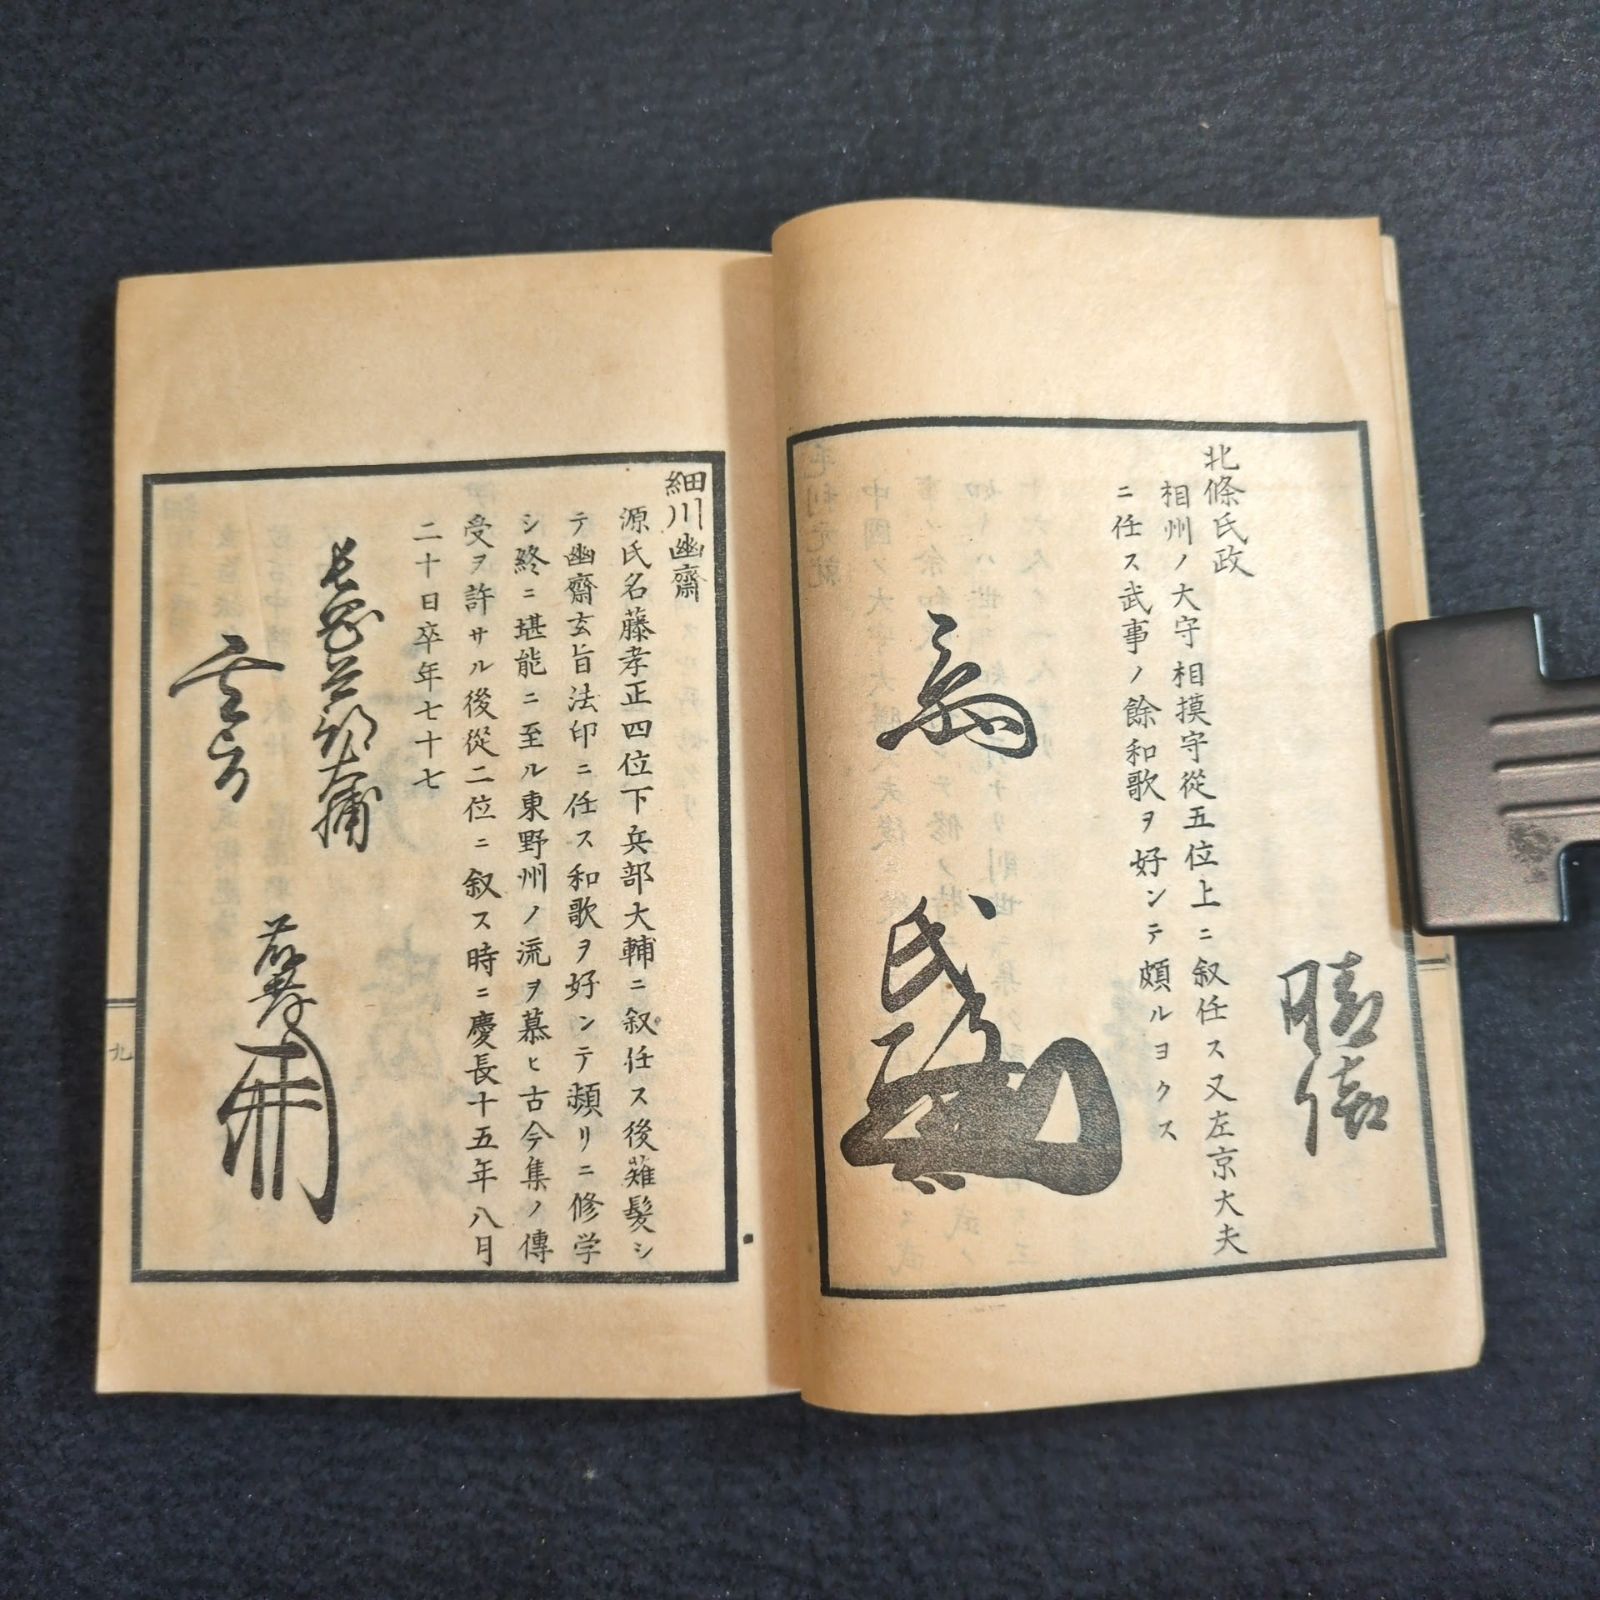 晴信
北條氏政
相州ノ大守相摸守從五位上ニ叙任ス又左京大夫
ニ任ス武事ノ餘和歌ヲ好ンテ頗ルヨクス
氏政
細川幽齋
源氏名藤孝正四位下兵部大輔ニ叙任ス後薙髮シ
テ幽齋玄旨法印ニ任ス和歌ヲ好ンテ頻リニ修学
シ終ニ堪能ニ至ル東野州ノ流ヲ慕ヒ古今集ノ傳
受ヲ許サル後從二位ニ叙ス時ニ慶長十五年八月
二十日卒年七十七
長岡兵部太輔
藤孝
玄旨
九